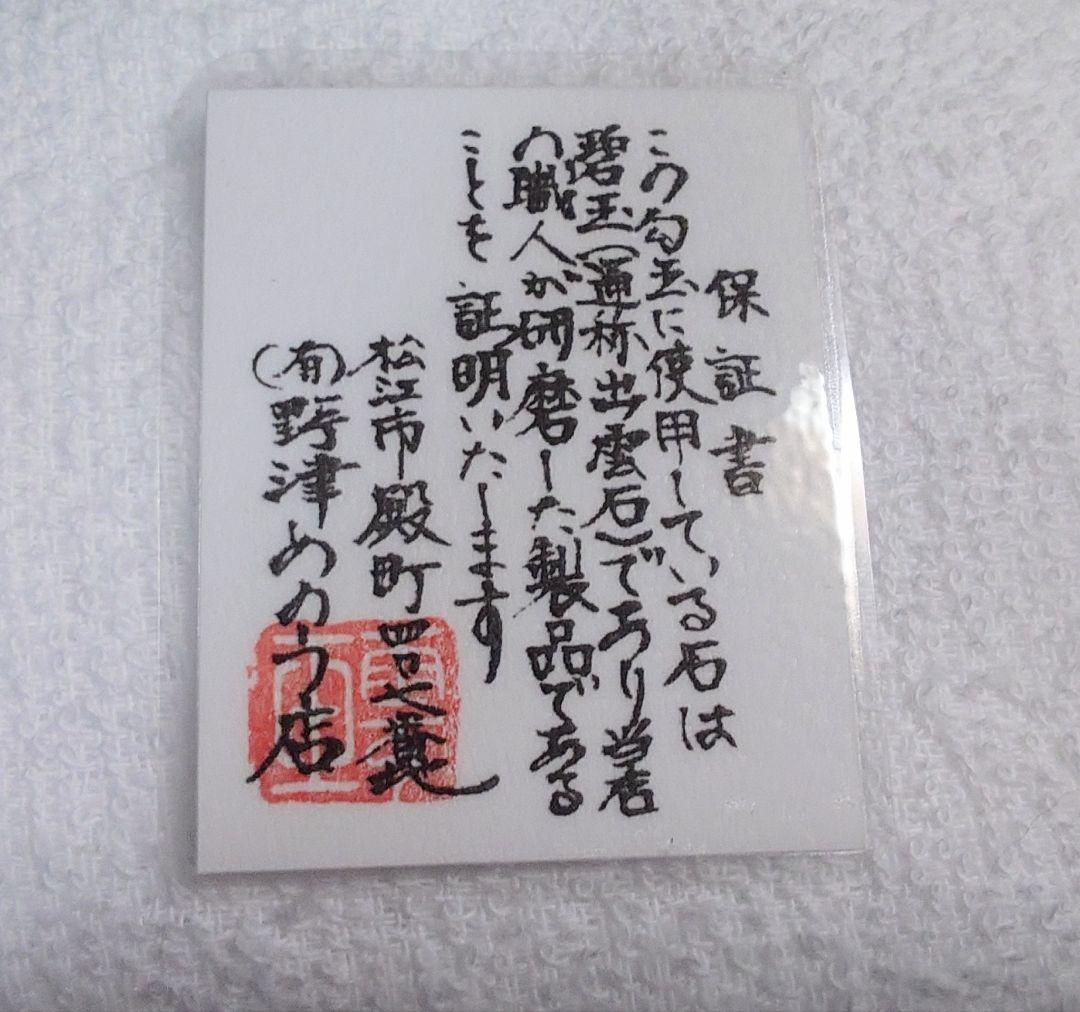 保証書
この勾玉に使用している石は
碧玉(通称出雲石)であり当店
の職人が研磨した製品である
ことを証明いたします
松江市殿町四七番地
(有)野津めのう店